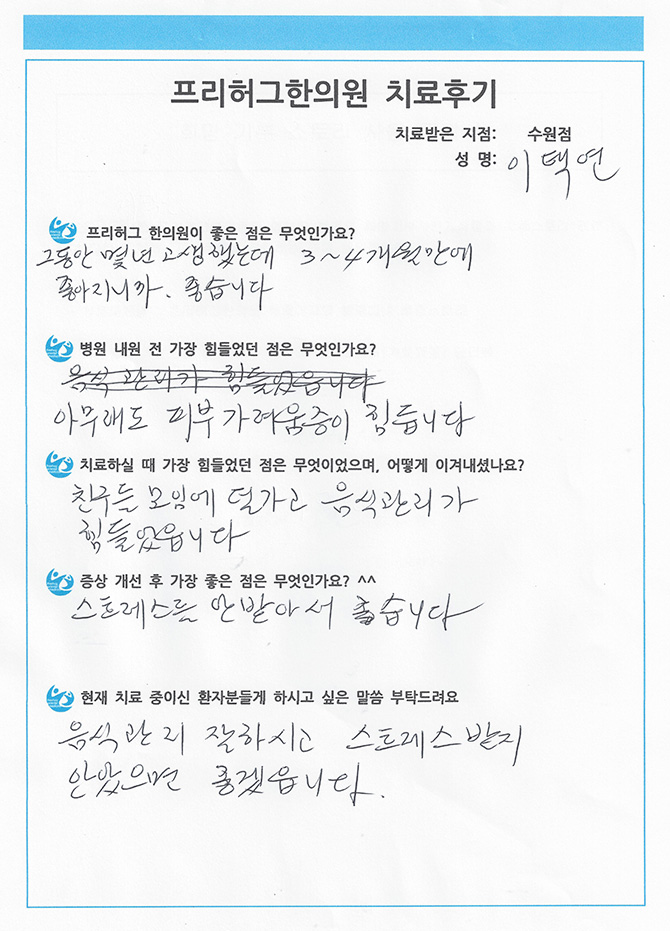 프리허그한의원 치료후기
치료받은 지점: 수원점
성 명: 이택연
프리허그 한의원이 좋은 점은 무엇인가요?
그동안 몇년 고생했는데 3~4개월만에
좋아지니까. 좋습니다
병원 내원 전 가장 힘들었던 점은 무엇인가요?
음식관리가 힘들었읍니다
아무래도 피부가려움증이 힘듭니다
치료하실 때 가장 힘들었던 점은 무엇이었으며, 어떻게 이겨내셨나요?
친구들 모임에 덜가고 음식관리가
힘들었읍니다
증상 개선 후 가장 좋은 점은 무엇인가요? ^^
스트레스를 안받아서 좋습니다
현재 치료 중이신 환자분들게 하시고 싶은 말씀 부탁드려요
음식관리 잘하시고 스트레스받지
안았으면 좋겠읍니다.